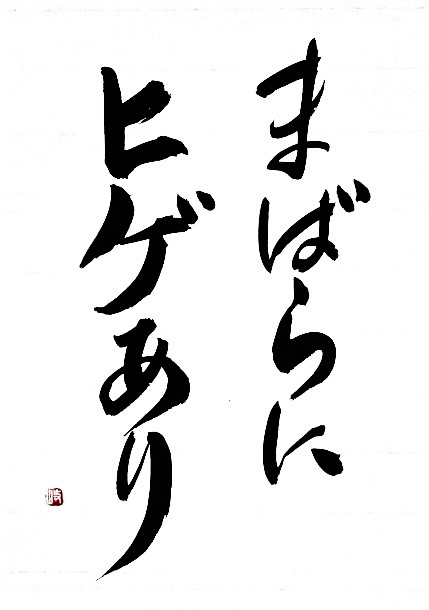 まばらに
ヒゲあり